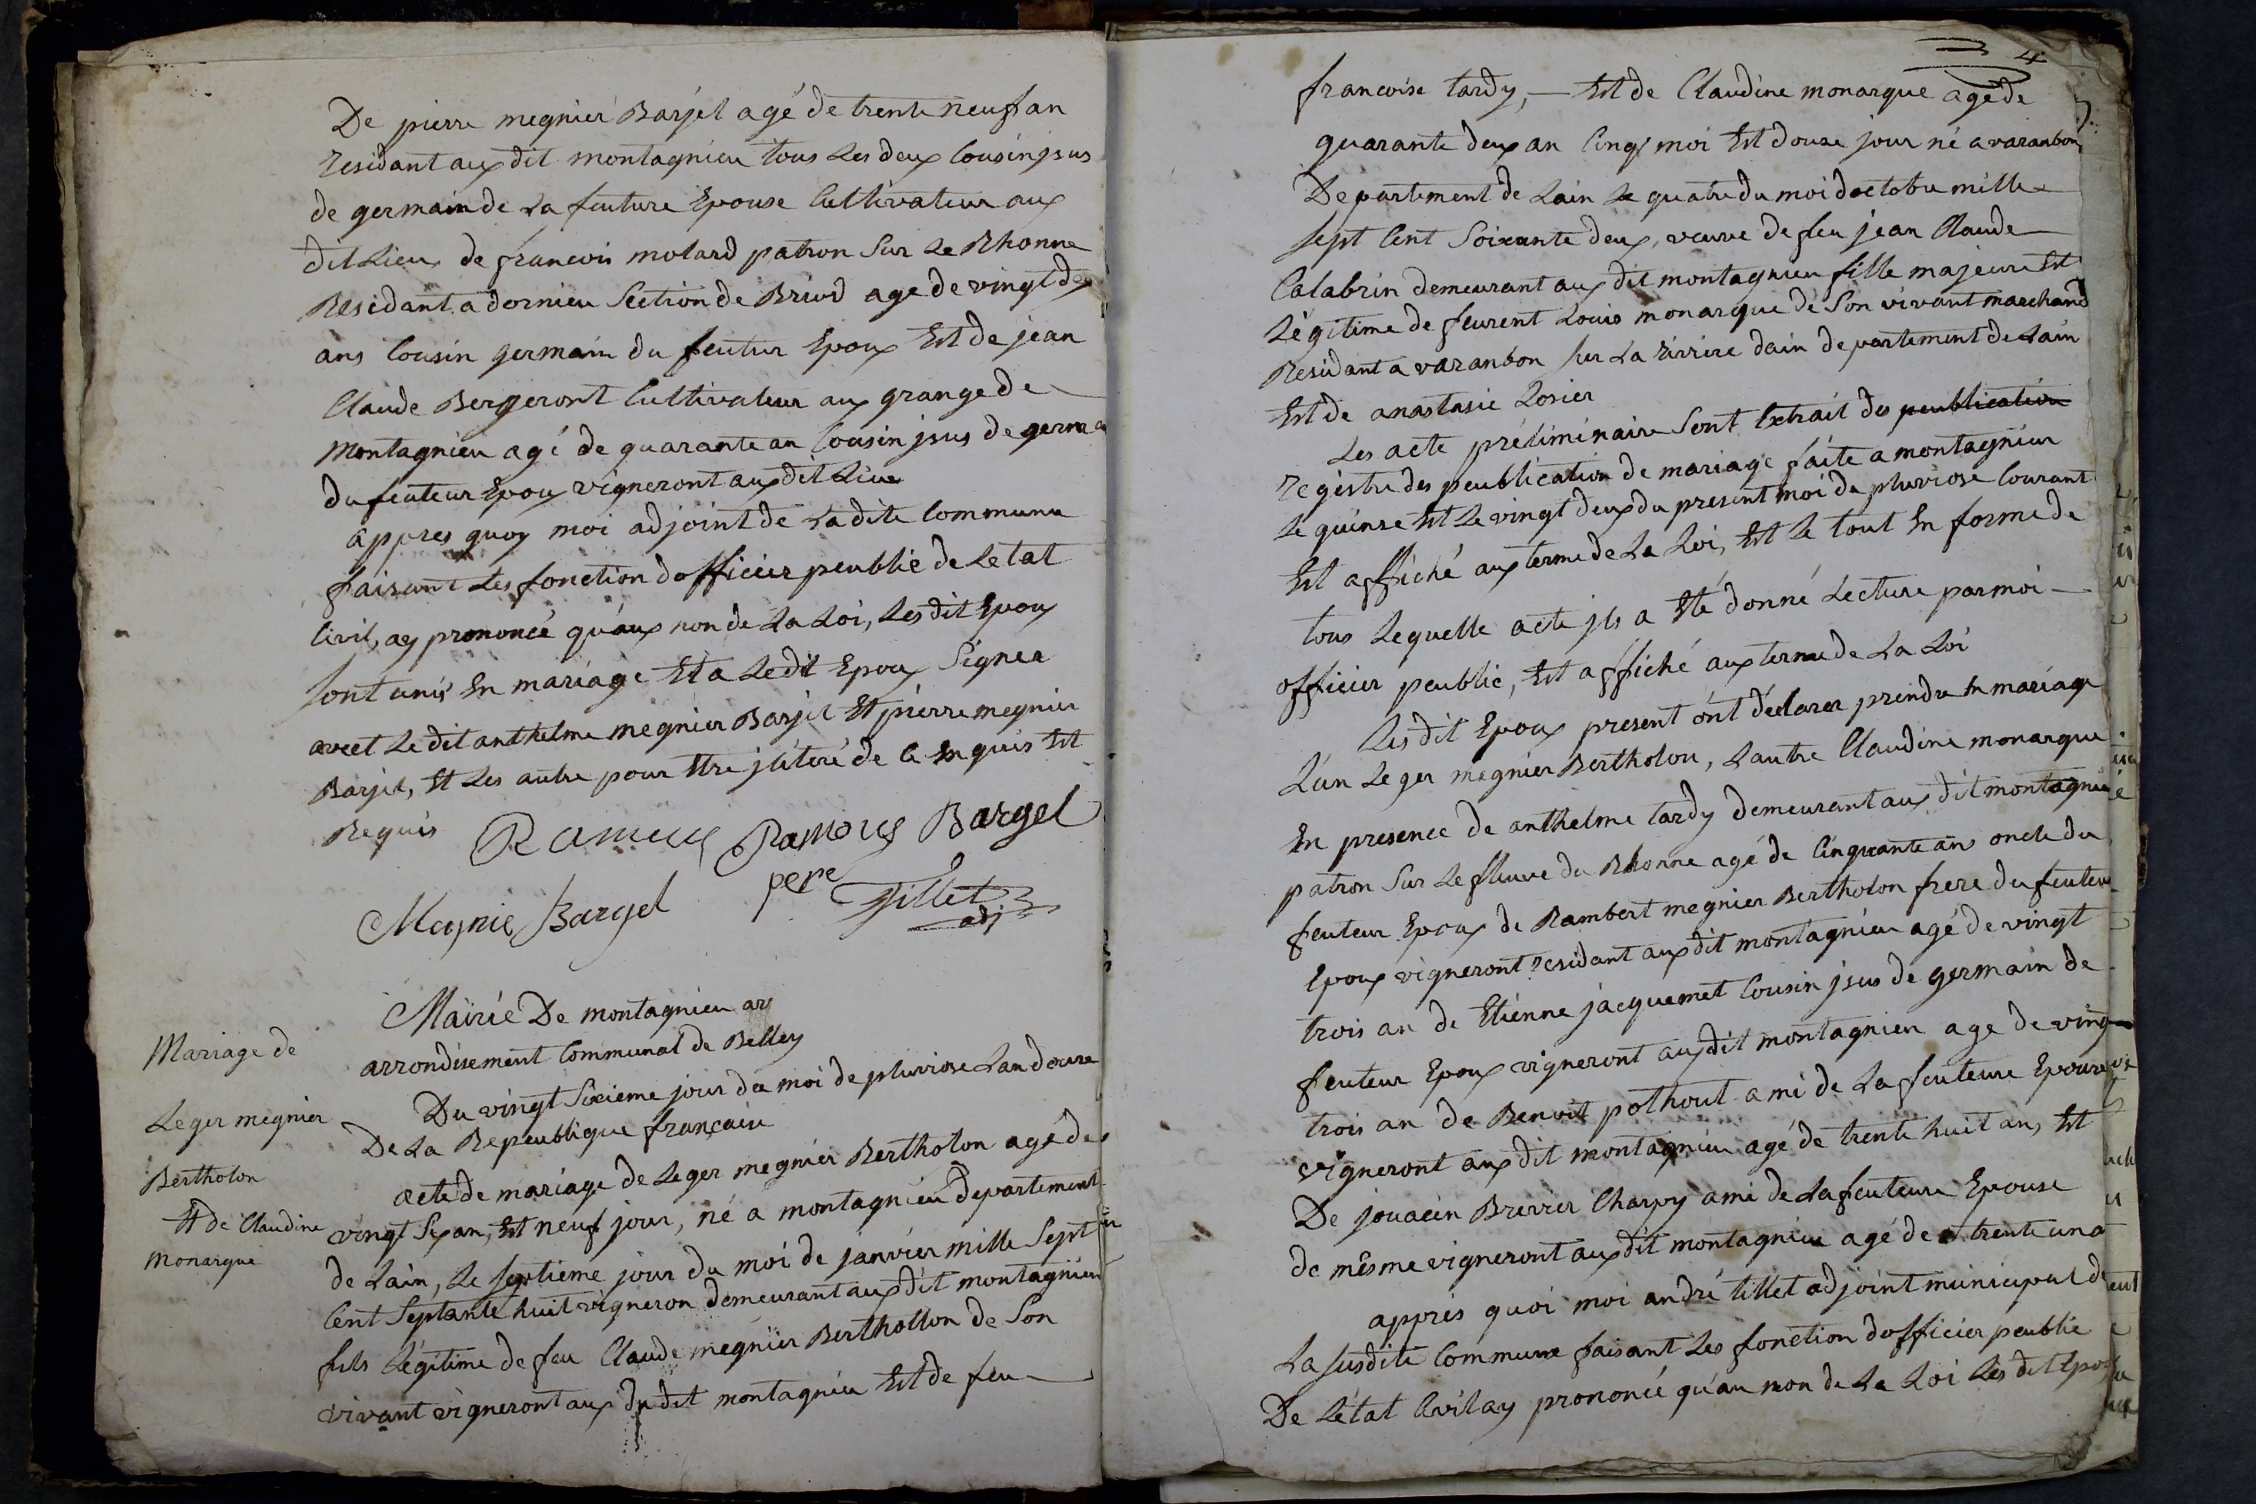 De pierre megnier Barjel agé de trente neuf an
residant aux dit montagnieu tous les deux Cousin jsus
de germain de la feuture Epouse Cultivateur aux
dit Lieu de francois molard patron Sur Le Rhonne
Residant a dornieu Section de Briord age de vingt deux
ans Cousin germain du feutur Epoux Est de jean
Claude Bergeront Cultivateur aux grange de
montagnieu agé de quarante an Cousin jsus de germa
du feuteur Epoux vigneront aux dit Lieu
appres quoy moi adjoint de Ladite Commune
faisant Les fonction dofficier peublic de Letat
Civil, ay prononcé quaux non de La Loi, Les dit Epoux
Sont unis En mariage Et a Ledit Epoux Signer
avect Ledit anthelme megnier Barjel Et pierre megnier
Barjel, Et Les autre pour Etre jlitéré de ce Enquis Est
Requis Ramous Ramous Bargel
pere
Megnie Bargel Tillet
adj
Mairie De montagnieu ar
arrondisement Communal de Belley
Mariage de
Leger megnier
Bertholon
Et de Claudine
monarque
Du vingt Sixieme jour du moi de pluviose Lan douze
De La Repeublique française
acte de mariage de Leger megnier Bertholon agé de
vingt Six an, Est neuf jour, né a montagnieu departement
de Lain, Le septieme jour du moi de janvier mille Sept
Cent Septante huit vigneron demeurant aux dit montagnieu
fils Légitime de feu Claude megnier Berthollon de Son
vivant vigneront aux du dit montagnieu Est de feu
4
francoise tardy, — Est de Claudine monarque agé de
quarante deux an Cinq moi Est douze jour né a varanbon
Departement de Lain Le quatre du moi doctobre mille
Sept Cent Soixante deux, veuve de feu jean Claude
Calabrin demeurant aux dit montagnieu fille majeure Est
Légitime de feurent Louis monarque de Son vivant marchand
Residant a varanbon Sur La Rivière dain departement de Lain
Est de anastasie Rosier
Les acte préliminaire Sont Extrait des peublication
registre des peublication de mariage faite a montagnieu
Le quinze Est Le vingt deux du present moi de pluviose Courant
Est affiché aux terme de La Loi, Est Le tout En forme de
tous Lequelle acte jls a Eté donné Lecture par moi
officier peublic, Est affiché aux terme de La Loi
Les dit Epoux present ont déclarer prendre En mariage
L'un Leger megnier Bertholon, Lautre Claudine monarque
En presence de anthelme tardy demeurant aux dit montagnieu
patron Sur Le fleuve du Rhonne agé de Cinquante ans oncle du
feuteur Epoux de Rambert megnier Bertholon frere du feuteur
Epoux vigneront residant aux dit montagnieu agé de vingt
trois an de Etienne jacquemet Cousin jsus de germain de
feuteur Epoux vigneront aux dit montagnieu age de vingt
trois an de Benoit pothout ami de La feuteure Epouse
vigneront aux dit montagnieu agé de trente huit an, Est
De jouacin Brevier Charpy ami de La feuteure Epouse
de mesme vigneront aux dit montagnieu agé de trente un a
apprés quoi moi andré tillet adjoint municipal de
La Susdite Commune faisant Les fonction dofficier peublic
De Létat Civil ay prononcé qu'au non de La Loi Les dit Epoux